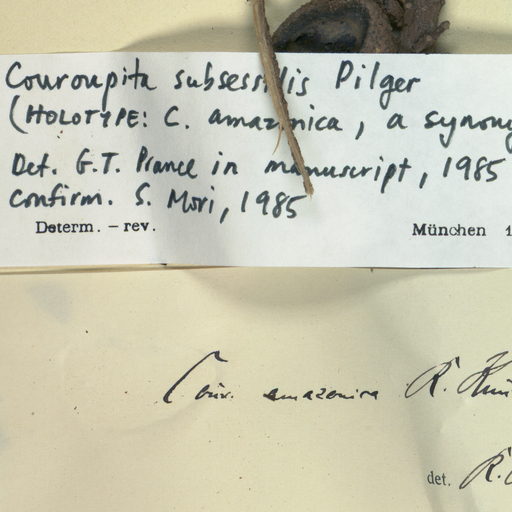 Couroupita subsessilis Pilger
(HOLOTYPE: C. amazonica, a synony
Det. G.T. Prance in manuscript, 1985
Confirm. S. Mori, 1985
Determ. – rev. München 1
Cour. amazonica R. Knu
det. R.